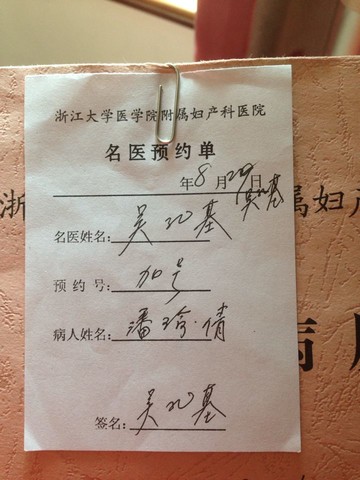 浙江大学医学院附属妇产科医院
名医预约单
年8月29日
名医姓名:吴
基
预约号:加号
病人姓名:潘
倩
签名:吴
基
浙
属妇产